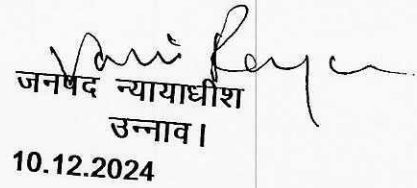 जनपद न्यायाधीश
उन्नाव।
10.12.2024